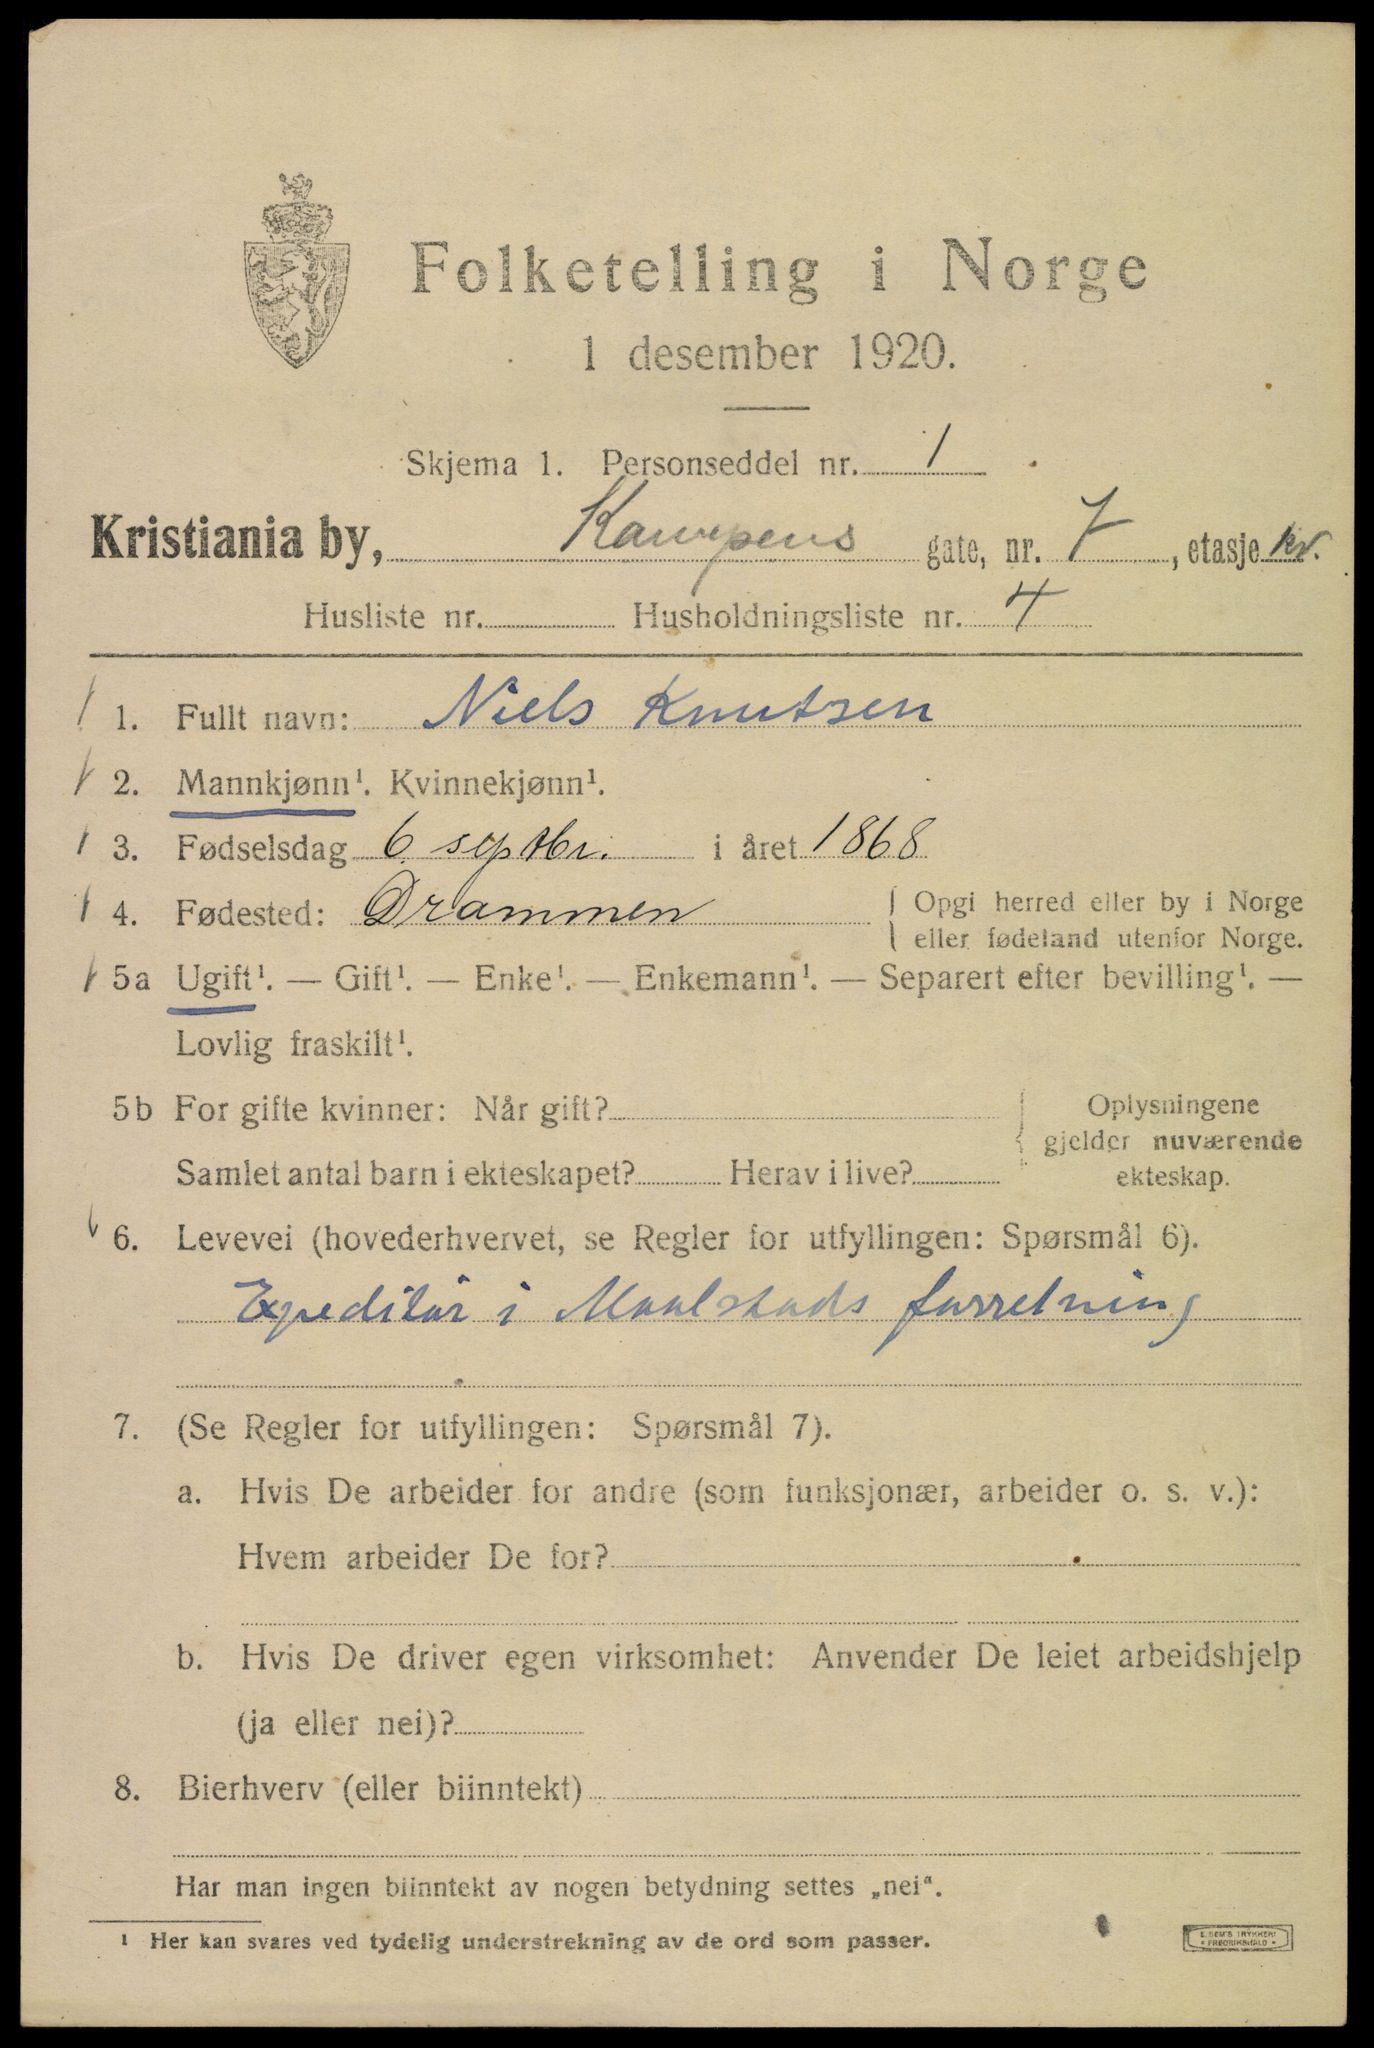 Folketelling i Norge
1 desember 1920.
Skjema 1. Personseddel nr. 1
Kristiania by, Kampens gate, nr. 7, etasje kv.
Husliste nr. Husholdningsliste nr. 4
1. Fullt navn: Niels Knutsen
2. Mannkjønn¹. Kvinnekjønn¹.
3. Fødselsdag 6 septbr. i året 1868
4. Fødested: Drammen { Opgi herred eller by i Norge
eller fødeland utenfor Norge.
5a Ugift¹. — Gift¹. — Enke¹. — Enkemann¹. — Separert efter bevilling¹. —
Lovlig fraskilt¹.
5b For gifte kvinner: Når gift? { Oplysningene
gjelder nuværende
Samlet antal barn i ekteskapet? Herav i live? ekteskap.
6. Levevei (hovederhvervet, se Regler for utfyllingen: Spørsmål 6).
Expeditør i Maalstads forretning
7. (Se Regler for utfyllingen: Spørsmål 7).
a. Hvis De arbeider for andre (som funksjonær, arbeider o. s. v.):
Hvem arbeider De for?
b. Hvis De driver egen virksomhet: Anvender De leiet arbeidshjelp
(ja eller nei)?
8. Bierhverv (eller biinntekt)
Har man ingen biinntekt av nogen betydning settes „nei“.
¹ Her kan svares ved tydelig understrekning av de ord som passer.
E. SEM'S TRYKKERI
• FREDRIKSHALD •